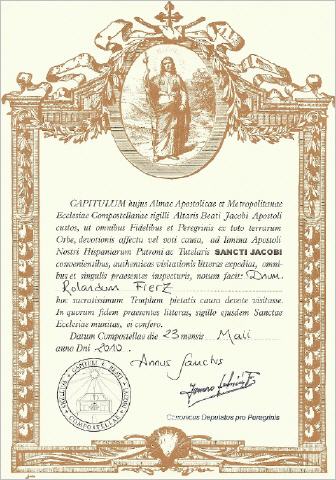 CAPITULUM hujus Almae Apostolicae et Metropolitanae
Ecclesiae Compostellanae sigilli Altaris Beati Jacobi Apostoli
custos, ut omnibus Fidelibus et Peregrinis ex toto terrarum
Orbe, devotionis affectu vel voti causa, ad limina Apostoli
Nostri Hispaniarum Patroni ac Tutelaris SANCTI JACOBI
convenientibus, authenticas visitationis litteras expediat, omni-
bus et singulis praesentes inspecturis, notum facit: Dnum
Rolandum Fierz
hoc sacratissimum Templum pietatis causa devote visitasse.
In quorum fidem praesentes litteras, sigillo ejusdem Sanctae
Ecclesiae munitas, ei confero.
Datum Compostellae die 23 mensis Maii
anno Dni 2010.
Annus Sanctus
Canonicus Deputatus pro Peregrinis